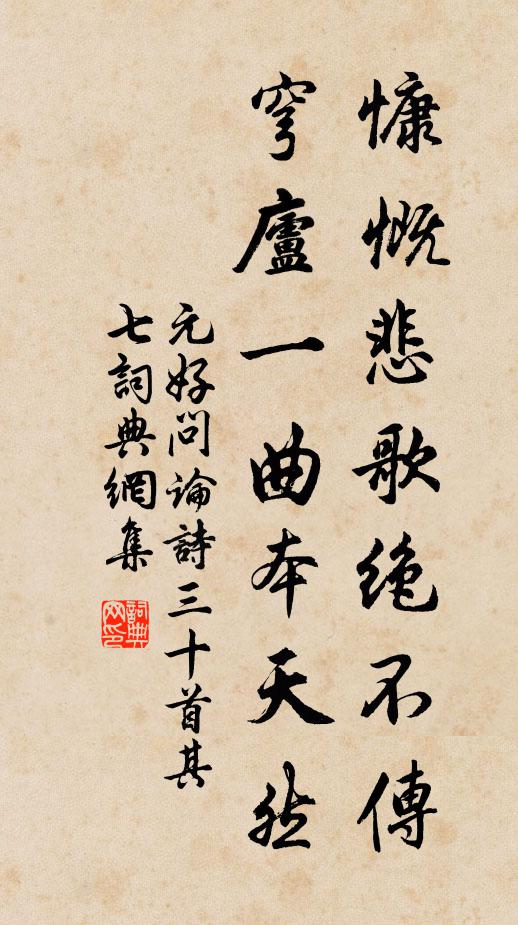 慷慨悲歌絶不傳
穹廬一曲本天然
元好問論詩三十首其
七詞典網集
詞典網印